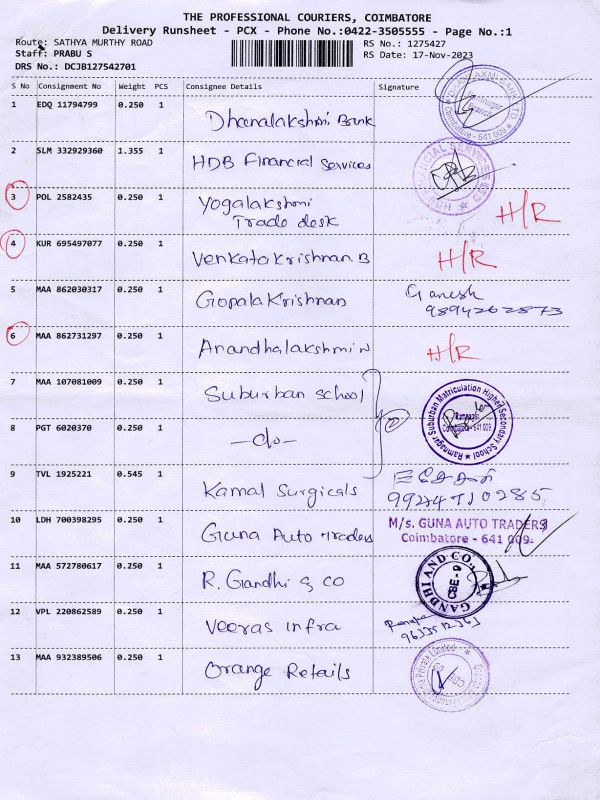 THE PROFESSIONAL COURIERS, COIMBATORE
Delivery Runsheet - PCX - Phone No.:0422-3505555 - Page No.:1
Route: SATHYA MURTHY ROAD RS No.: 1275427
Staff: PRABU S RS Date: 17-Nov-2023
DRS No.: DCJB127542701
S No Consignment No Weight PCS Consignee Details Signature
1 EDQ 11794799 0.250 1 Dhanalakshmi Bank
Ramnagar Branch Coimbatore - 641 009
2 SLM 332929360 1.355 1 HDB Financial Services
3 POL 2582435 0.250 1 Yogalakshmi
Trade desk H/R
4 KUR 695497077 0.250 1 Venkatakrishnan B H/R
5 MAA 862030317 0.250 1 Gopalakrishnan Ganesh
9894262873
6 MAA 862731297 0.250 1 Anandhalakshmi N H/R
7 MAA 107081009 0.250 1 Suburban School
Ramnagar Suburban Matriculation Higher Secondary School Ramnagar Coimbatore - 641 009
8 PGT 6020370 0.250 1 -do- 2
9 TVL 1925221 0.545 1 Kamal Surgicals
10 LDH 700398295 0.250 1 Guna Auto Traders M/s. GUNA AUTO TRADERS
Coimbatore - 641 009.
11 MAA 572780617 0.250 1 R. Gandhi & co GANDHI AND CO. CBE-9
12 VPL 220862589 0.250 1 Veeras infra
13 MAA 932389506 0.250 1 Orange Retails